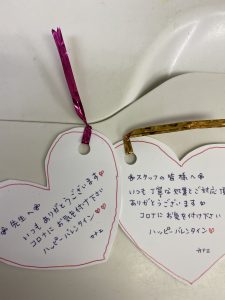 ❀先生へ❀
いつもありがとうございます♡
コロナにお気を付け下さい
ハッピーバレンタイン♡
カナエ
❀スタッフの皆様へ❀
いつも丁寧な処置とご対応頂
ありがとうございます♡
コロナにお気を付け下さい
ハッピーバレンタイン♡
カナエ